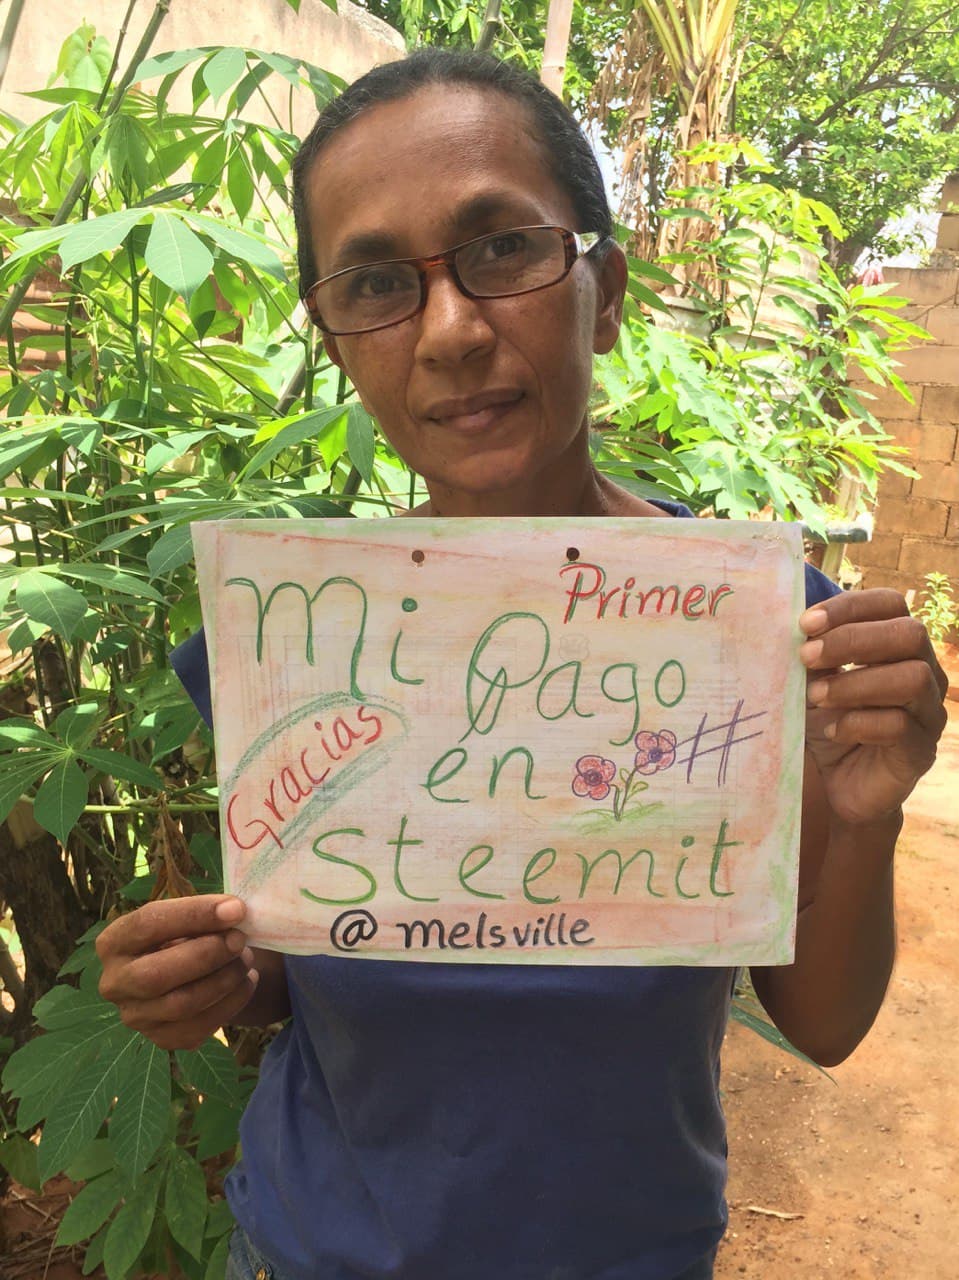 Primer
Mi Pago
Gracias
en #
Steemit
@melsville